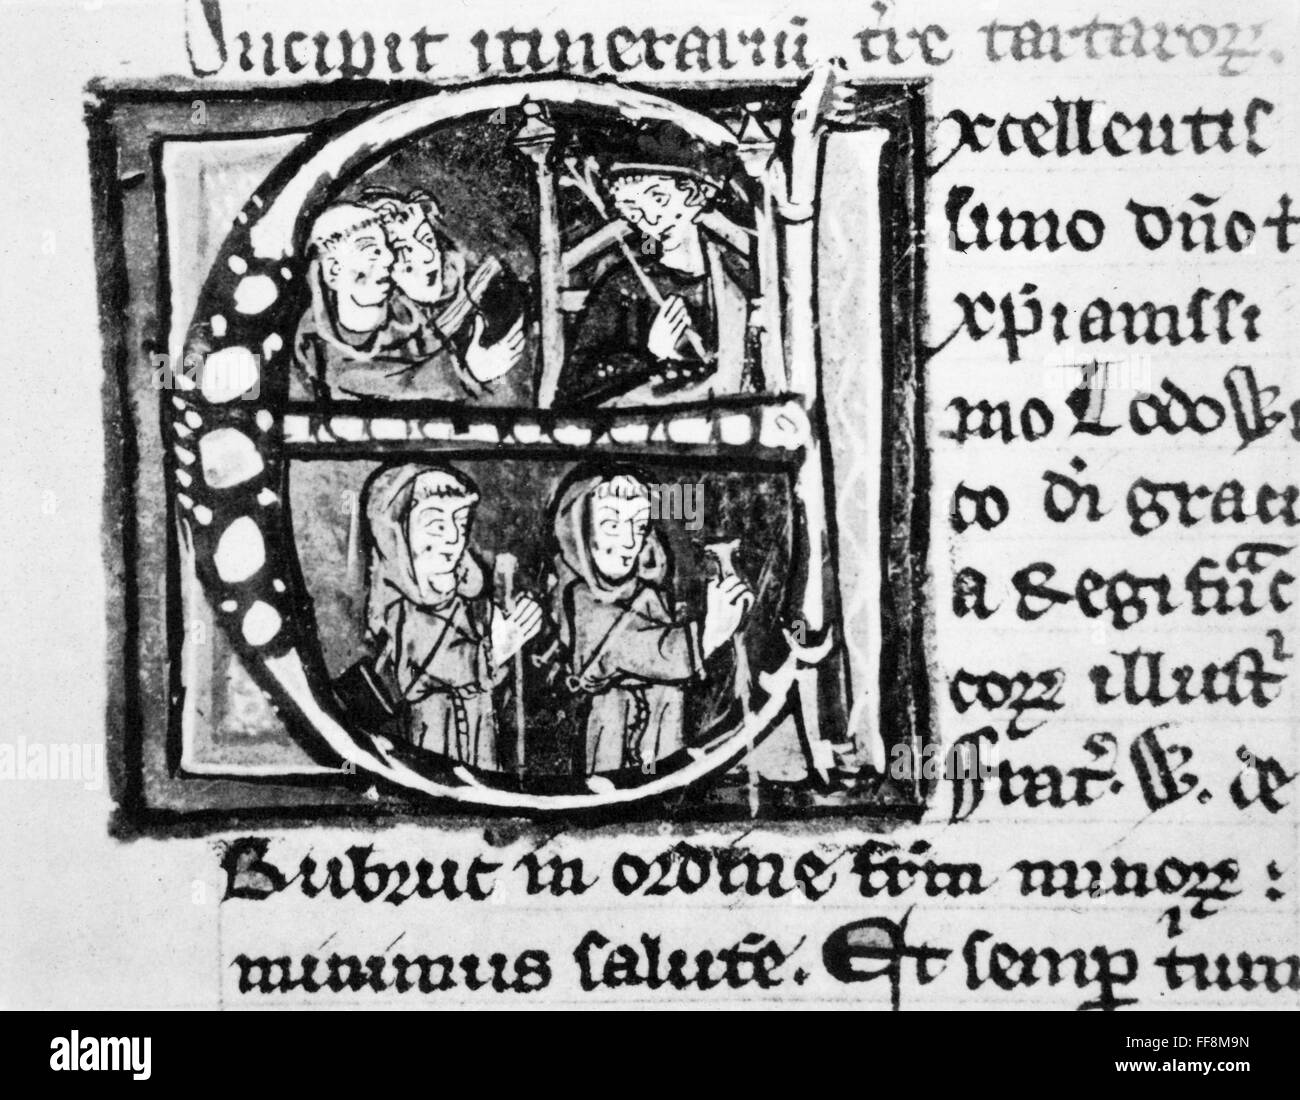 Incipit itinerariū t̄re tartarorꝝ.
Excellentis
simo dño ⁊
xp̄ianissi
mo Lodowi
co dī gratia
a Regi frāc
corꝝ illustrī
fratr̄. W. de
Rubruc in ordine fr̄m minorꝝ:
minimus salutē. Et semp̄ tium
alamy
Image ID: FF8M9N
www.alamy.com